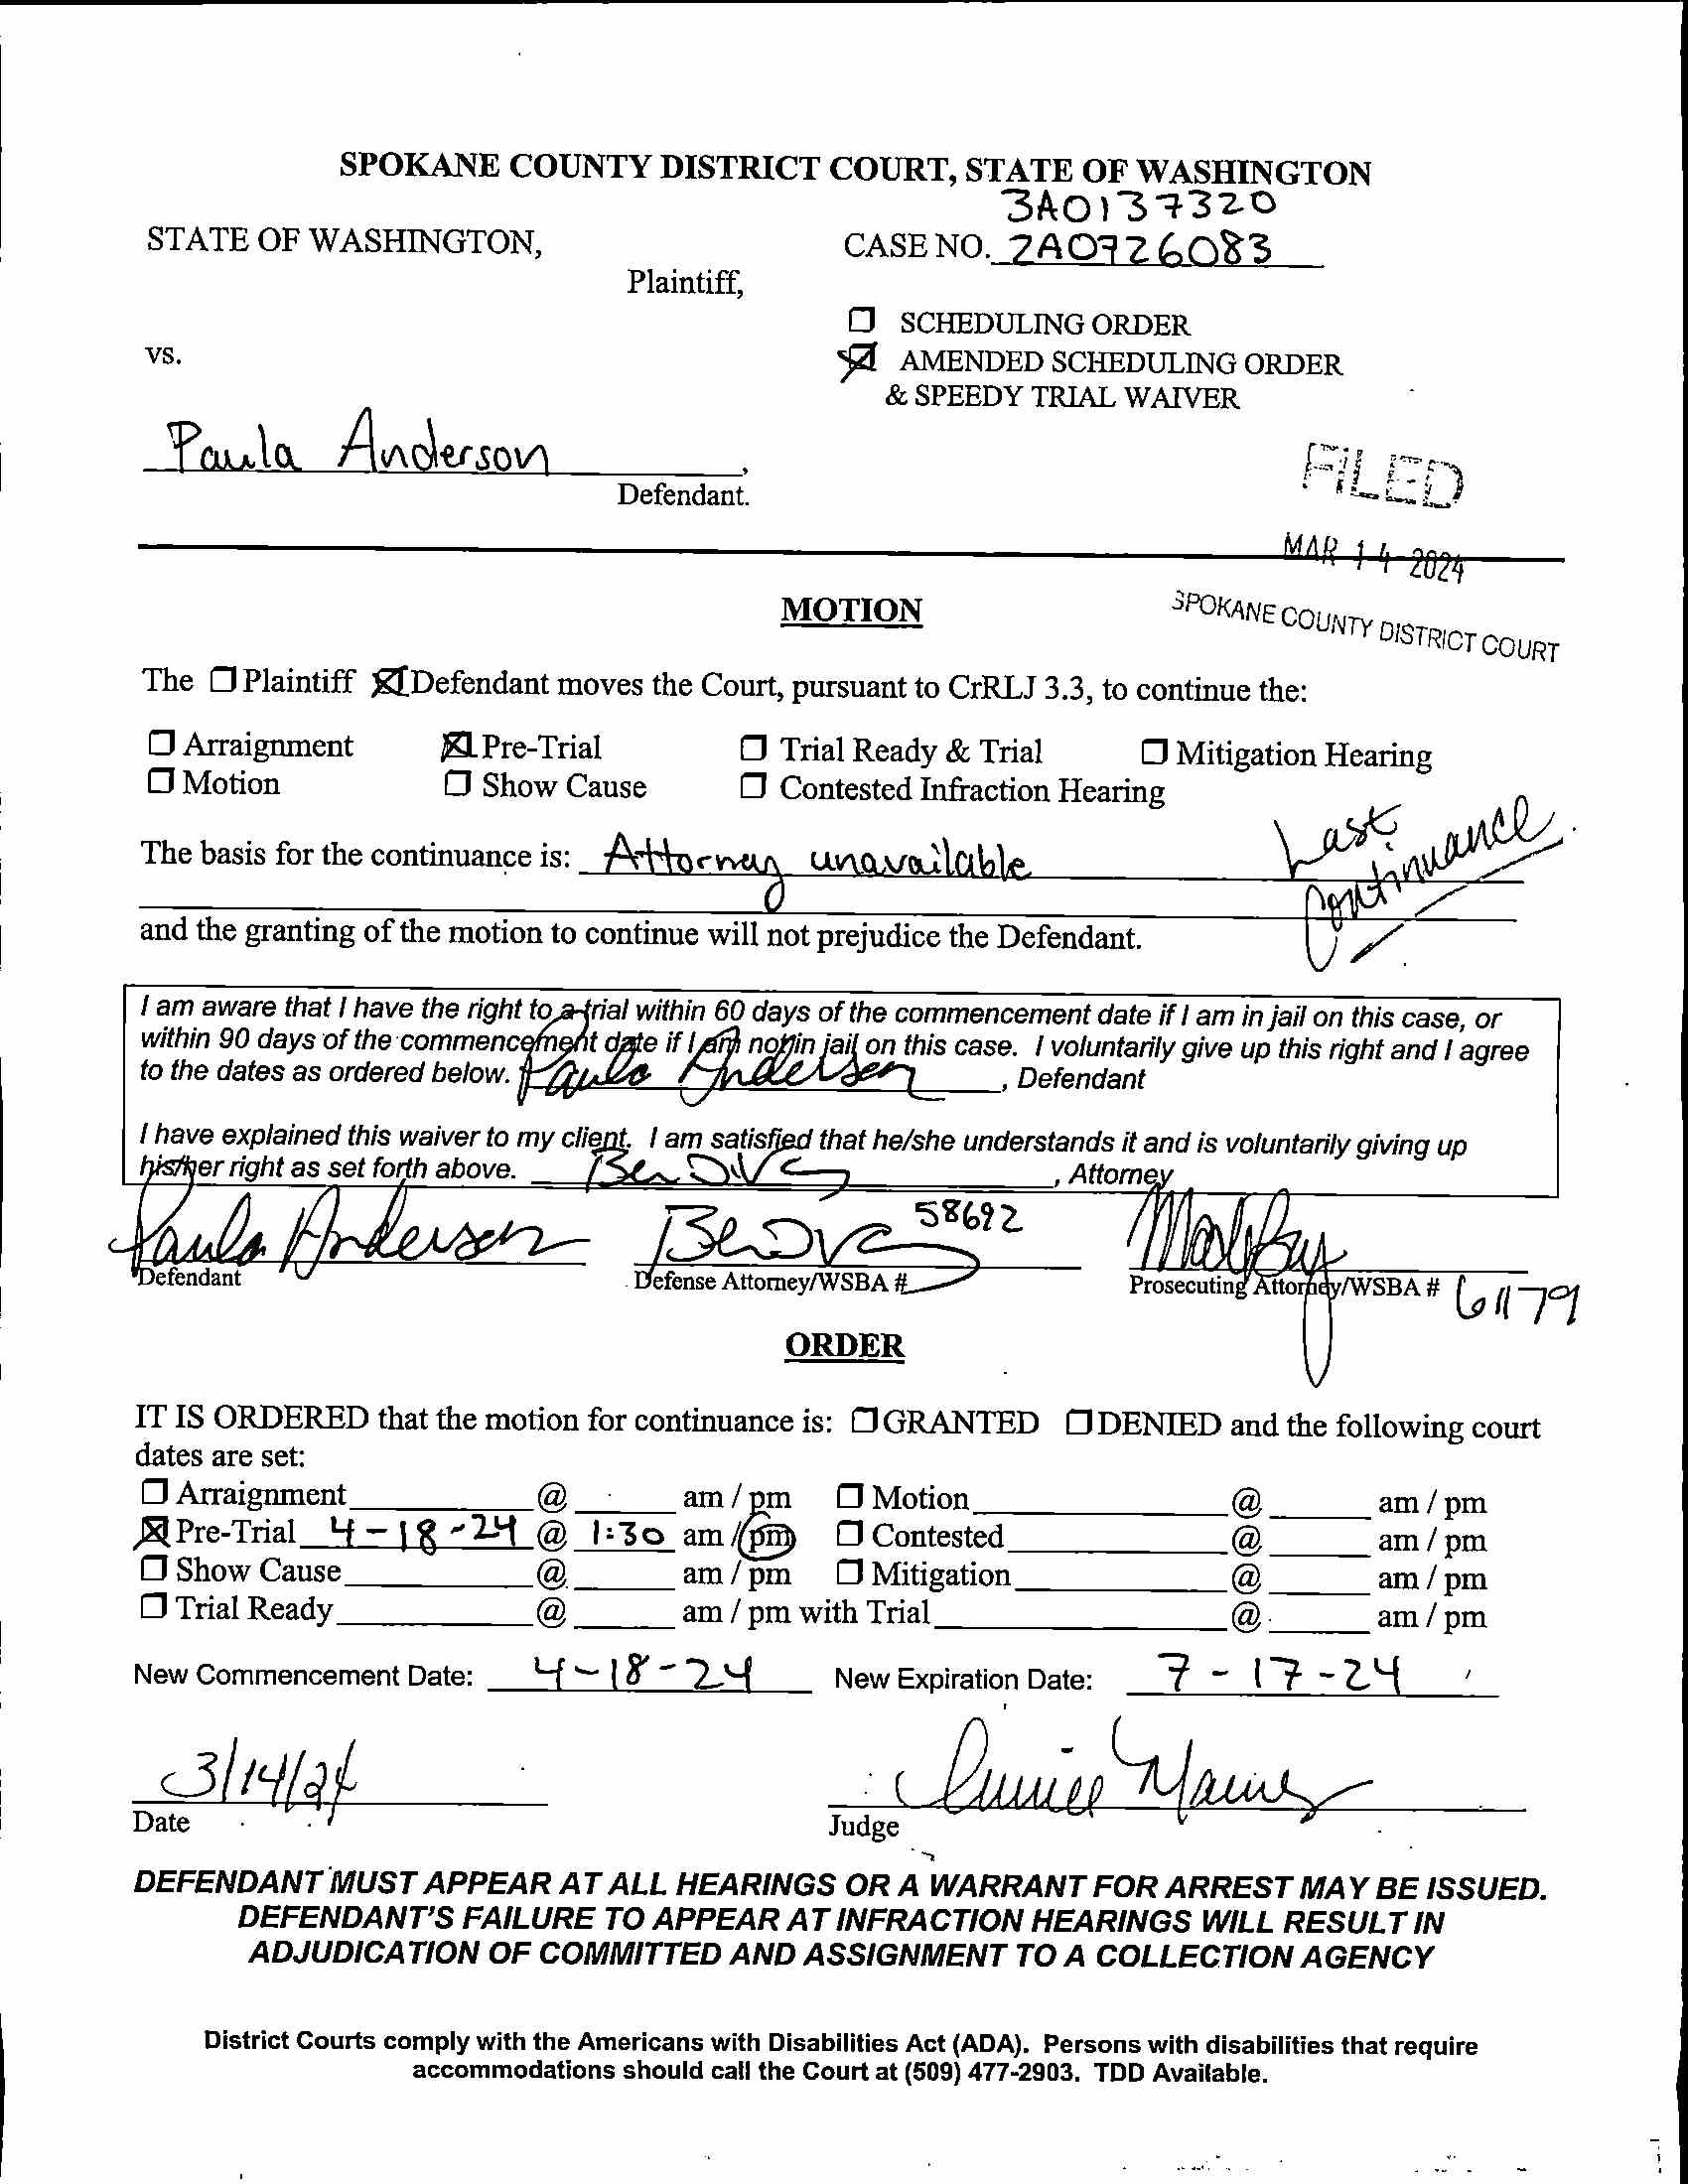 SPOKANE COUNTY DISTRICT COURT, STATE OF WASHINGTON
3A0137320
STATE OF WASHINGTON,
CASE NO. 2A0726083
Plaintiff,
☐ SCHEDULING ORDER
vs.
☒ AMENDED SCHEDULING ORDER
& SPEEDY TRIAL WAIVER
Paula Anderson,
Defendant.
FILED
MAR 14 2024
SPOKANE COUNTY DISTRICT COURT
MOTION
The ☐ Plaintiff ☒ Defendant moves the Court, pursuant to CrRLJ 3.3, to continue the:
☐ Arraignment ☒ Pre-Trial ☐ Trial Ready & Trial ☐ Mitigation Hearing
☐ Motion ☐ Show Cause ☐ Contested Infraction Hearing
The basis for the continuance is: Attorney unavailable
Last
Continuance
and the granting of the motion to continue will not prejudice the Defendant.
I am aware that I have the right to a trial within 60 days of the commencement date if I am in jail on this case, or
within 90 days of the commencement date if I am not in jail on this case. I voluntarily give up this right and I agree
to the dates as ordered below. Paula Anderson, Defendant
I have explained this waiver to my client. I am satisfied that he/she understands it and is voluntarily giving up
his/her right as set forth above. Ben, Attorney
Paula Anderson Ben 58692
Defendant Defense Attorney/WSBA # Prosecuting Attorney/WSBA # 61179
ORDER
IT IS ORDERED that the motion for continuance is: ☐ GRANTED ☐ DENIED and the following court
dates are set:
☐ Arraignment @ am / pm ☐ Motion @ am / pm
☒ Pre-Trial 4-18-24 @ 1:30 am / pm ☐ Contested @ am / pm
☐ Show Cause @ am / pm ☐ Mitigation @ am / pm
☐ Trial Ready @ am / pm with Trial @ am / pm
New Commencement Date: 4-18-24 New Expiration Date: 7-17-24
3/14/24
Date Judge
DEFENDANT MUST APPEAR AT ALL HEARINGS OR A WARRANT FOR ARREST MAY BE ISSUED.
DEFENDANT'S FAILURE TO APPEAR AT INFRACTION HEARINGS WILL RESULT IN
ADJUDICATION OF COMMITTED AND ASSIGNMENT TO A COLLECTION AGENCY
District Courts comply with the Americans with Disabilities Act (ADA). Persons with disabilities that require
accommodations should call the Court at (509) 477-2903. TDD Available.